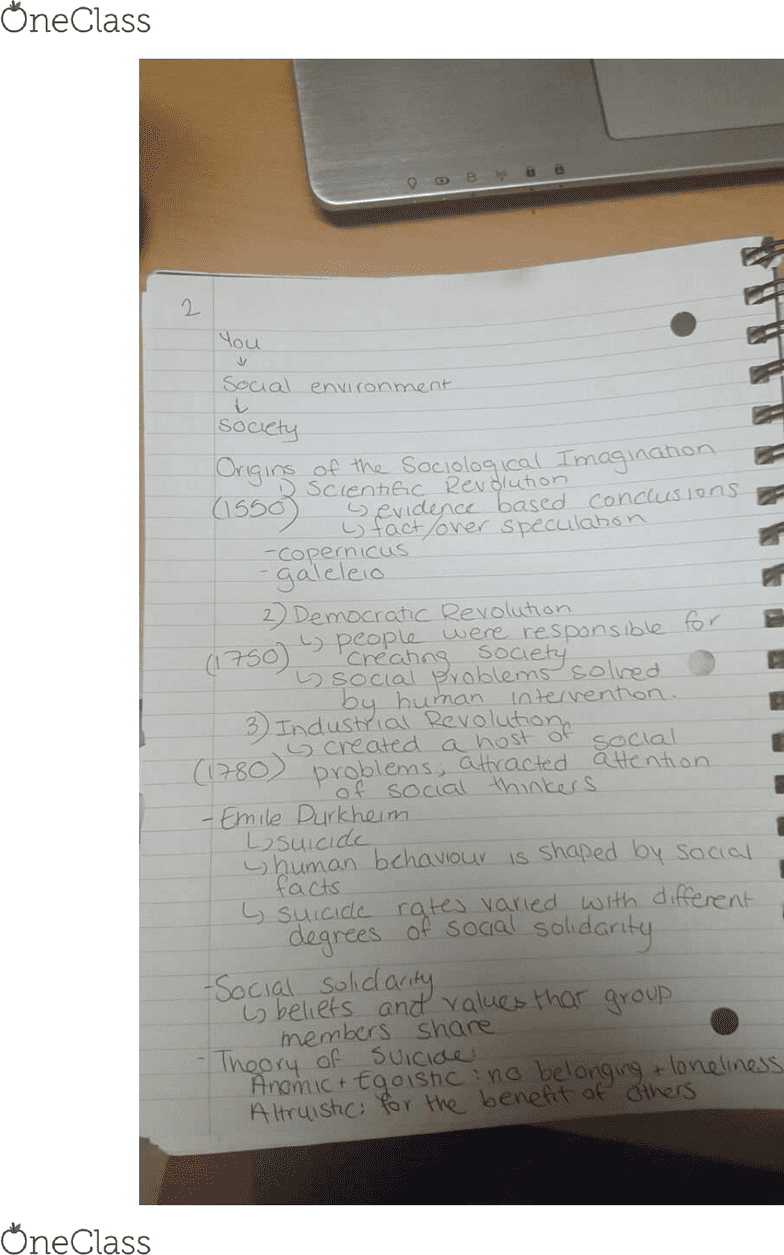 OneClass
2
You
↓
Social environment
↓
Society
Origins of the Sociological Imagination
1) Scientific Revolution
(1550) ↳ evidence based conclusions
↳ fact/over speculation
- copernicus
- galeleio
2) Democratic Revolution
↳ people were responsible for
(1750) creating society
↳ social problems solved
by human intervention.
3) Industrial Revolution
↳ created a host of social
(1780) problems, attracted attention
of social thinkers
- Emile Durkheim
↳ suicide
↳ human behaviour is shaped by social
facts
↳ suicide rates varied with different
degrees of social solidarity
- Social solidarity
↳ beliefs and values that group
members share
- Theory of suicide:
Anomic + Egoistic : no belonging + loneliness
Altruistic: for the benefit of others
OneClass